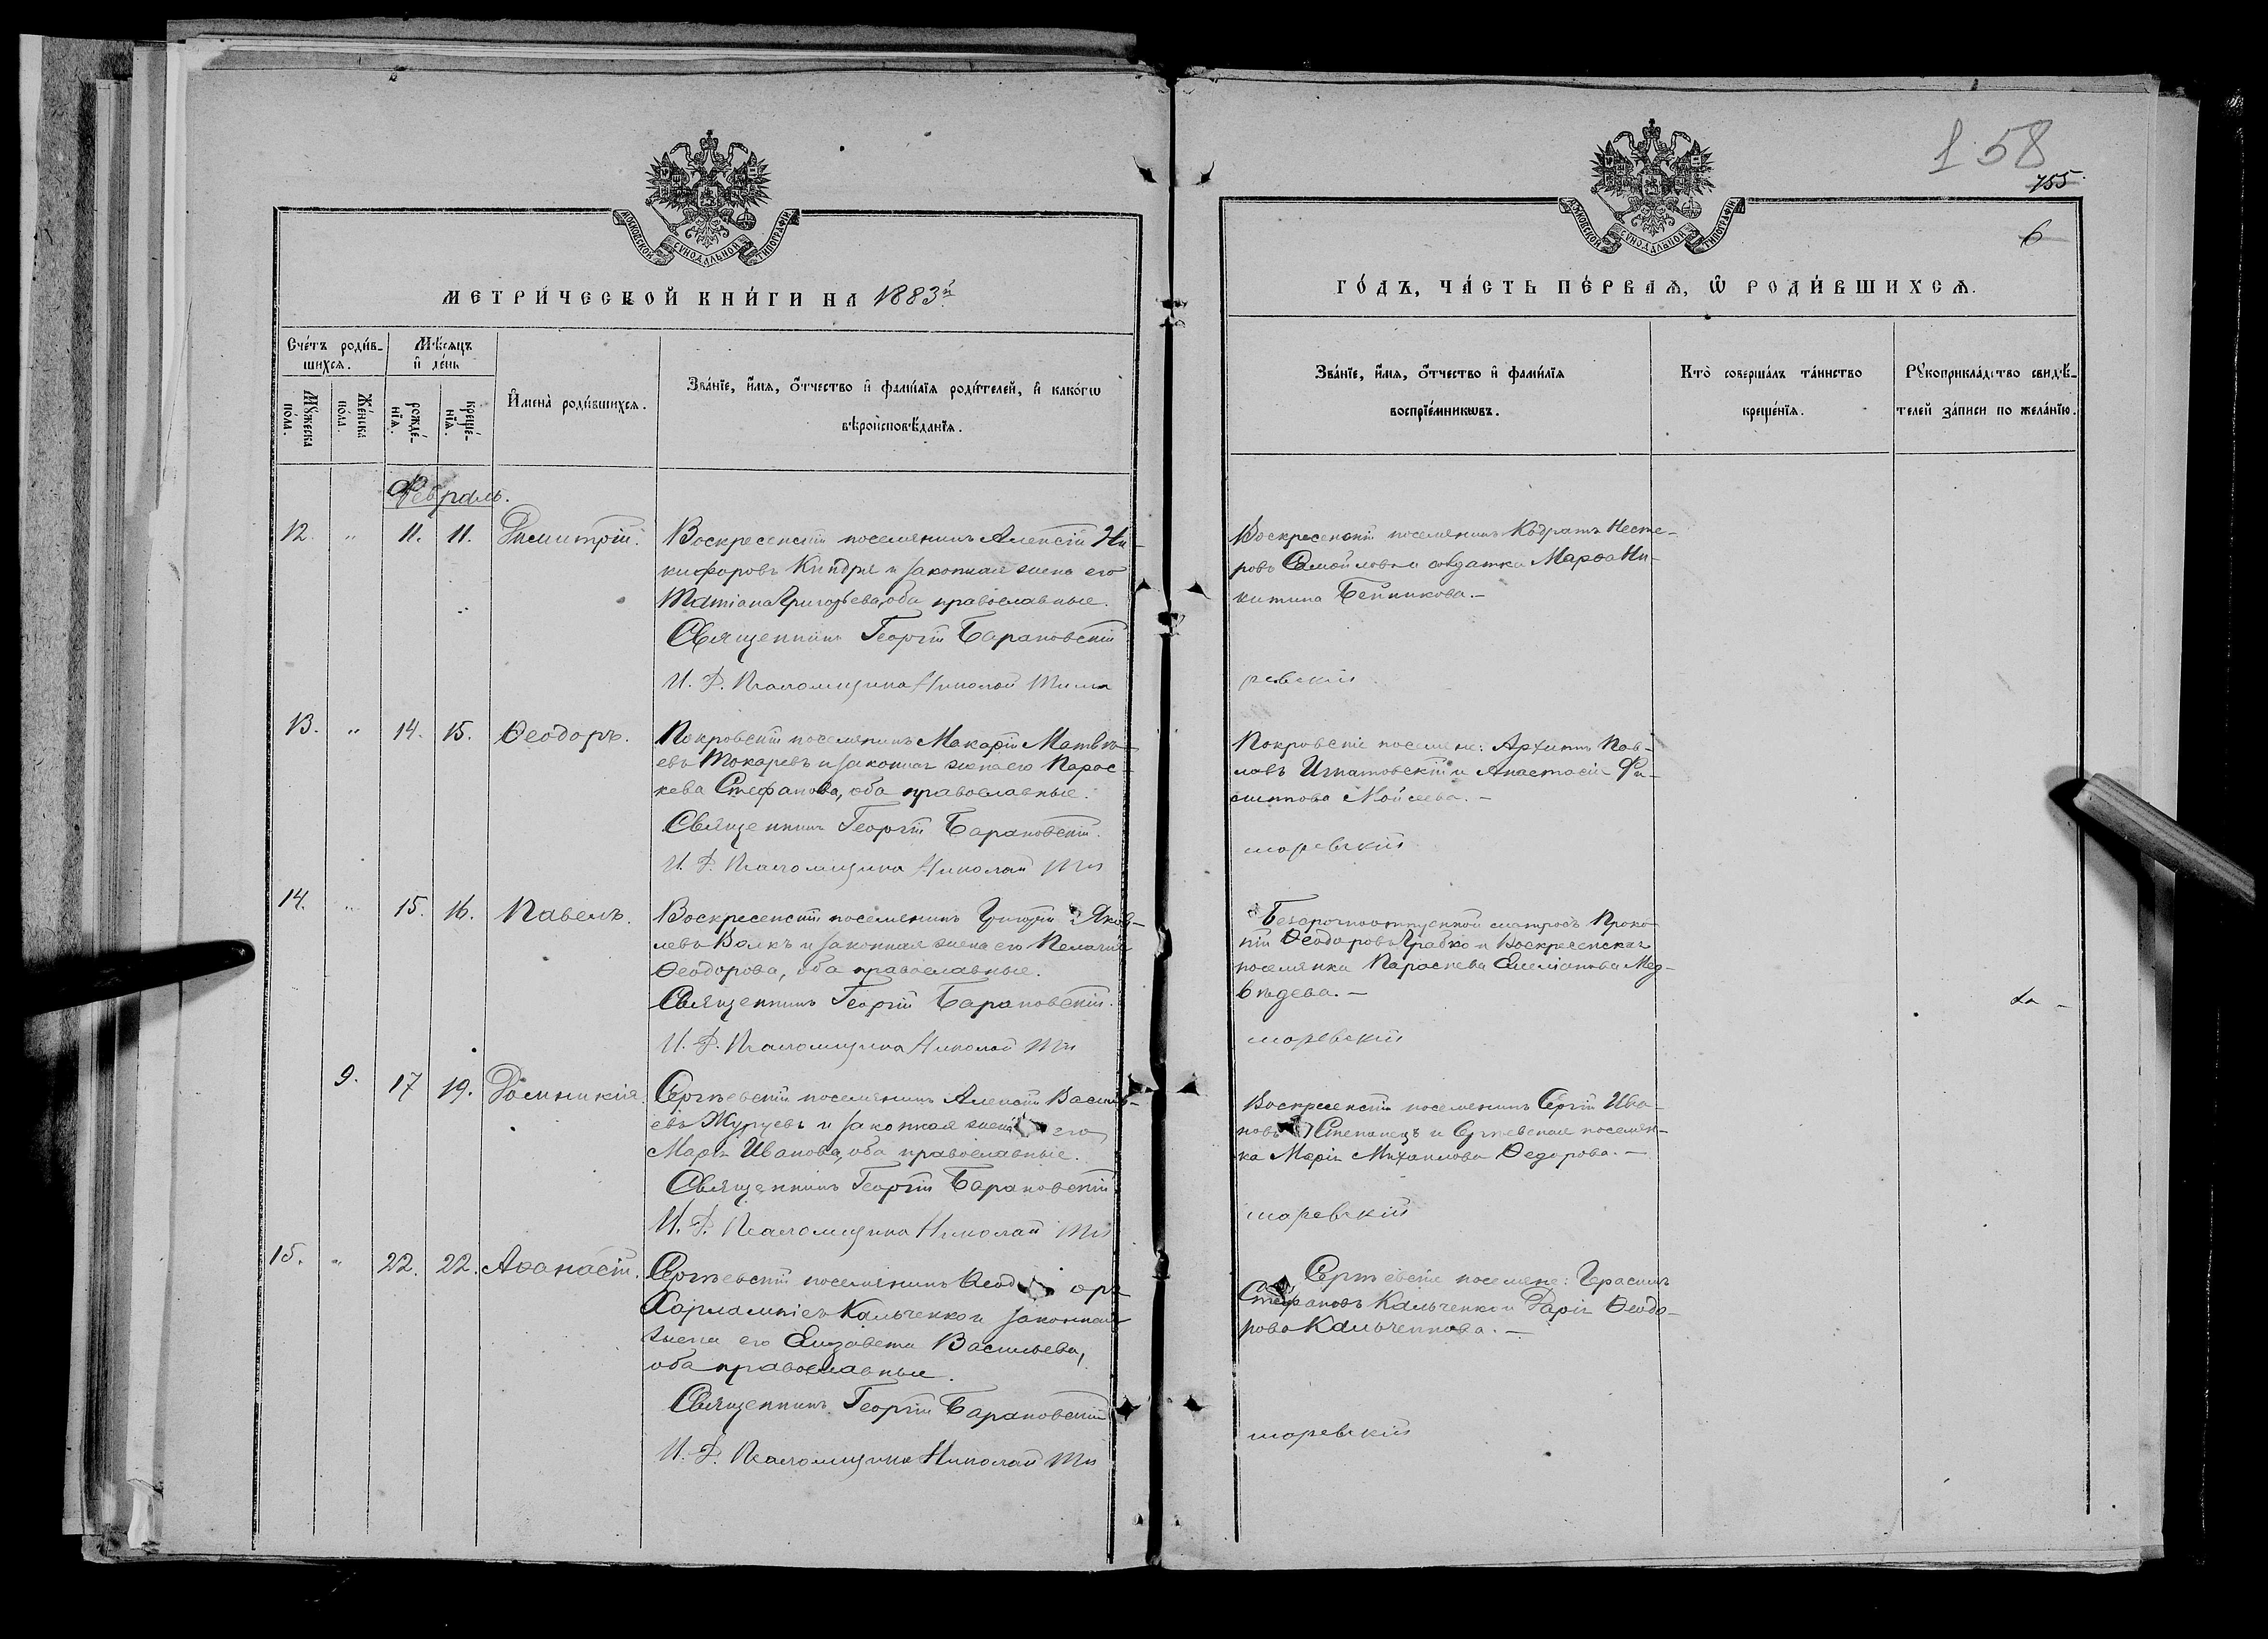 МОСКОВСКОЙ СѴНОДАЛЬНОЙ ТИПОГРАФІИ
МЕТРИ́ЧЕСКОЙ КНИ́ГИ НА 1883й
Сче́тъ роди́в-
шихсѧ.
Мѣсѧцъ
и҆ де́нь
Мꙋ́жеска
по́ла.
Же́нска
по́ла.
рожде́-
нїѧ.
креще́-
нїѧ.
И҆мена̀ роди́вшихсѧ.
Зва́нїе, и҆́мѧ, ѻ҆́тчество и҆ фами́лїѧ роди́телей, и҆ како́гѡ
вѣроисповѣ́данїѧ.
Февраль.
12. " 11. 11. Димитрій.
Воскресенскій поселянинъ Алексій Ни-
кифоровъ Киндря и законная жена его
Татіана Григорьева, оба православные.
Священникъ Георгій Барановскій
И. Д. Псаломщика Николай Тимо
13. " 14. 15. Ѳеодоръ.
Покровскій поселянинъ Макарій Матвѣ-
евъ Токаревъ и законная жена его Парас-
кева Стефанова, оба православные.
Священникъ Георгій Барановскій.
И. Д. Псаломщика Николай Ти
14. " 15. 16. Павелъ.
Воскресенскій поселянинъ Григорій Яков-
левъ Волкъ и законная жена его Пелагія
Ѳеодорова, оба православные.
Священникъ Георгій Барановскій.
И. Д. Псаломщика Николай Ти
9. 17 19. Домникія.
Сергѣевскій поселянинъ Алексій Василь-
евъ и законная жена его
Марія Иванова, оба православные.
Священникъ Георгій Барановскій
И. Д. Псаломщика Николай Ти
15. " 22. 22. Аѳанасій.
Сергѣевскій поселянинъ Ѳеодоръ
Харлампіевъ Кальченко и законная
жена его Елизавета Васильева,
оба православные.
Священникъ Георгій Барановскій
И. Д. Псаломщика Николай Ти
158
755
6
МОСКОВСКОЙ СѴНОДАЛЬНОЙ ТИПОГРАФІИ
ГО́ДЪ, ЧА́СТЬ ПЕ́РВАѦ, Ѡ҆ РОДИ́ВШИХСѦ.
Зва́нїе, и҆́мѧ, ѻ҆́тчество и҆ фами́лїѧ
воспрїе́мникѡвъ.
Кто̀ соверша́лъ та́инство
креще́нїѧ.
Рꙋкоприкла́дство свидѣ́-
телей за́писи по жела́нїю.
Воскресенскій поселянинъ Кодратъ Несте-
ровъ Самойловъ и солдатка Марѳа Ни-
китина Бейникова.-
ревскій
Покровскіе поселяне: Архиппъ Пав-
ловъ Игнатовскій и Анастасія Фи-
липпова Мойсеева.-
моревскій
Безсрочноотпускной матросъ Проко-
пій Ѳеодоровъ Грабко и Воскресенская
поселянка Параскева Емеліанова Мед-
вѣдева.-
моревскій
Воскресенскій поселянинъ Сергій Ива-
новъ Степанецъ и Сергѣевская поселян-
ка Марія Михаилова Ѳедорова.-
моревскій
Сергѣевскіе поселяне: Герасимъ
Стефановъ Кальченко и Дарія Ѳеодо-
рова Кальченкова.-
моревскій